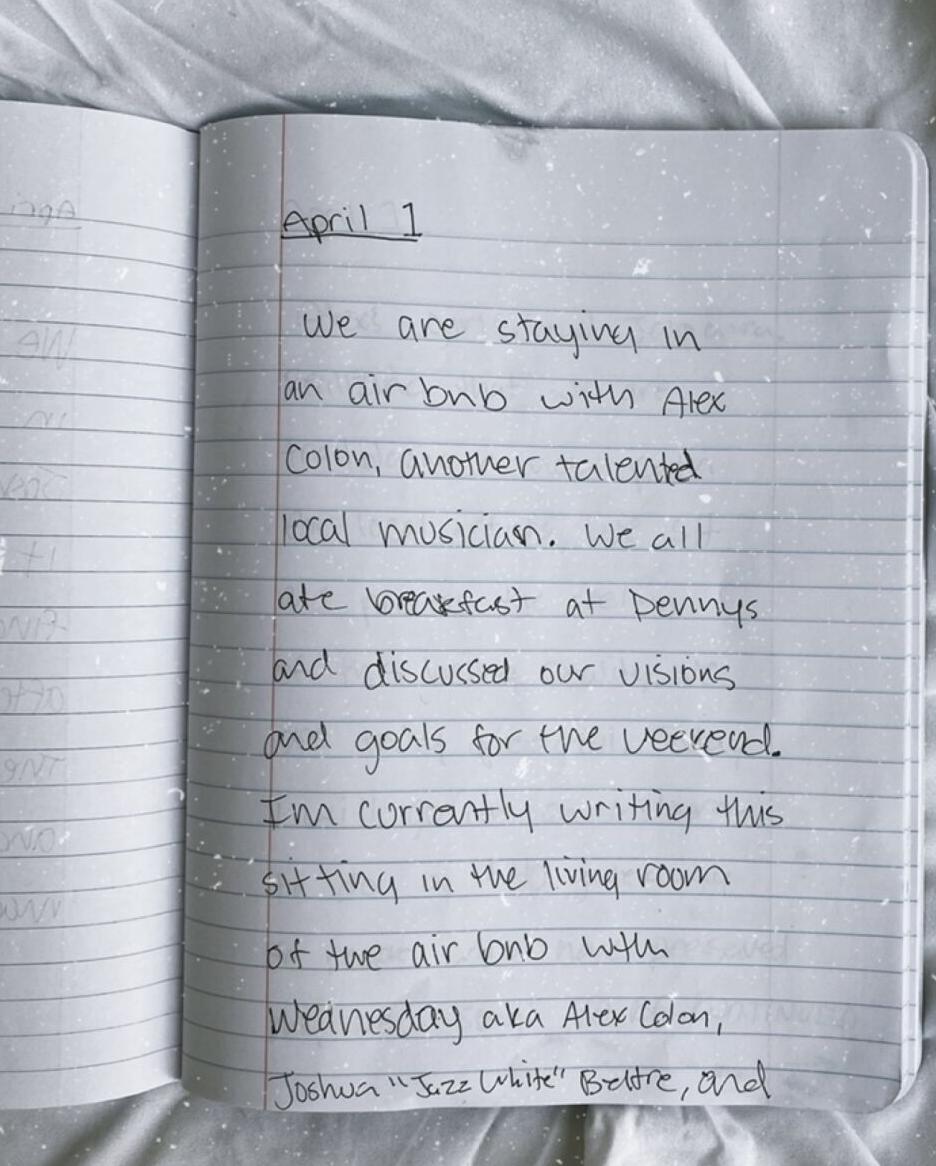 April 1
We are staying in
an air bnb with Alex
Colon, another talented
local musician. We all
ate breakfast at Dennys
and discussed our visions
and goals for the weekend.
Im currently writing this
sitting in the living room
of the air bnb with
Wednesday aka Alex Colon,
Joshua "Jazz White" Beltre, and